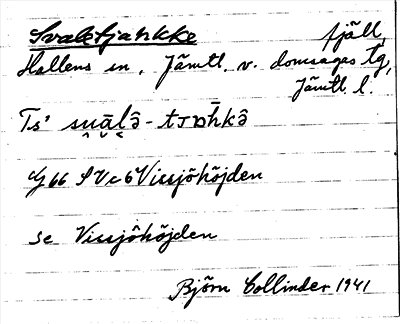 Svaletjahkke fjäll
Hallens sn, Jämtl. v. domsagas tg,
Jämtl. l.
Ts' su̯ālə̑ - tjɒ̄hkə̑
dg 66 SV c 6 Vissjöhöjden
se Vissjöhöjden
Björn Collinder 1941